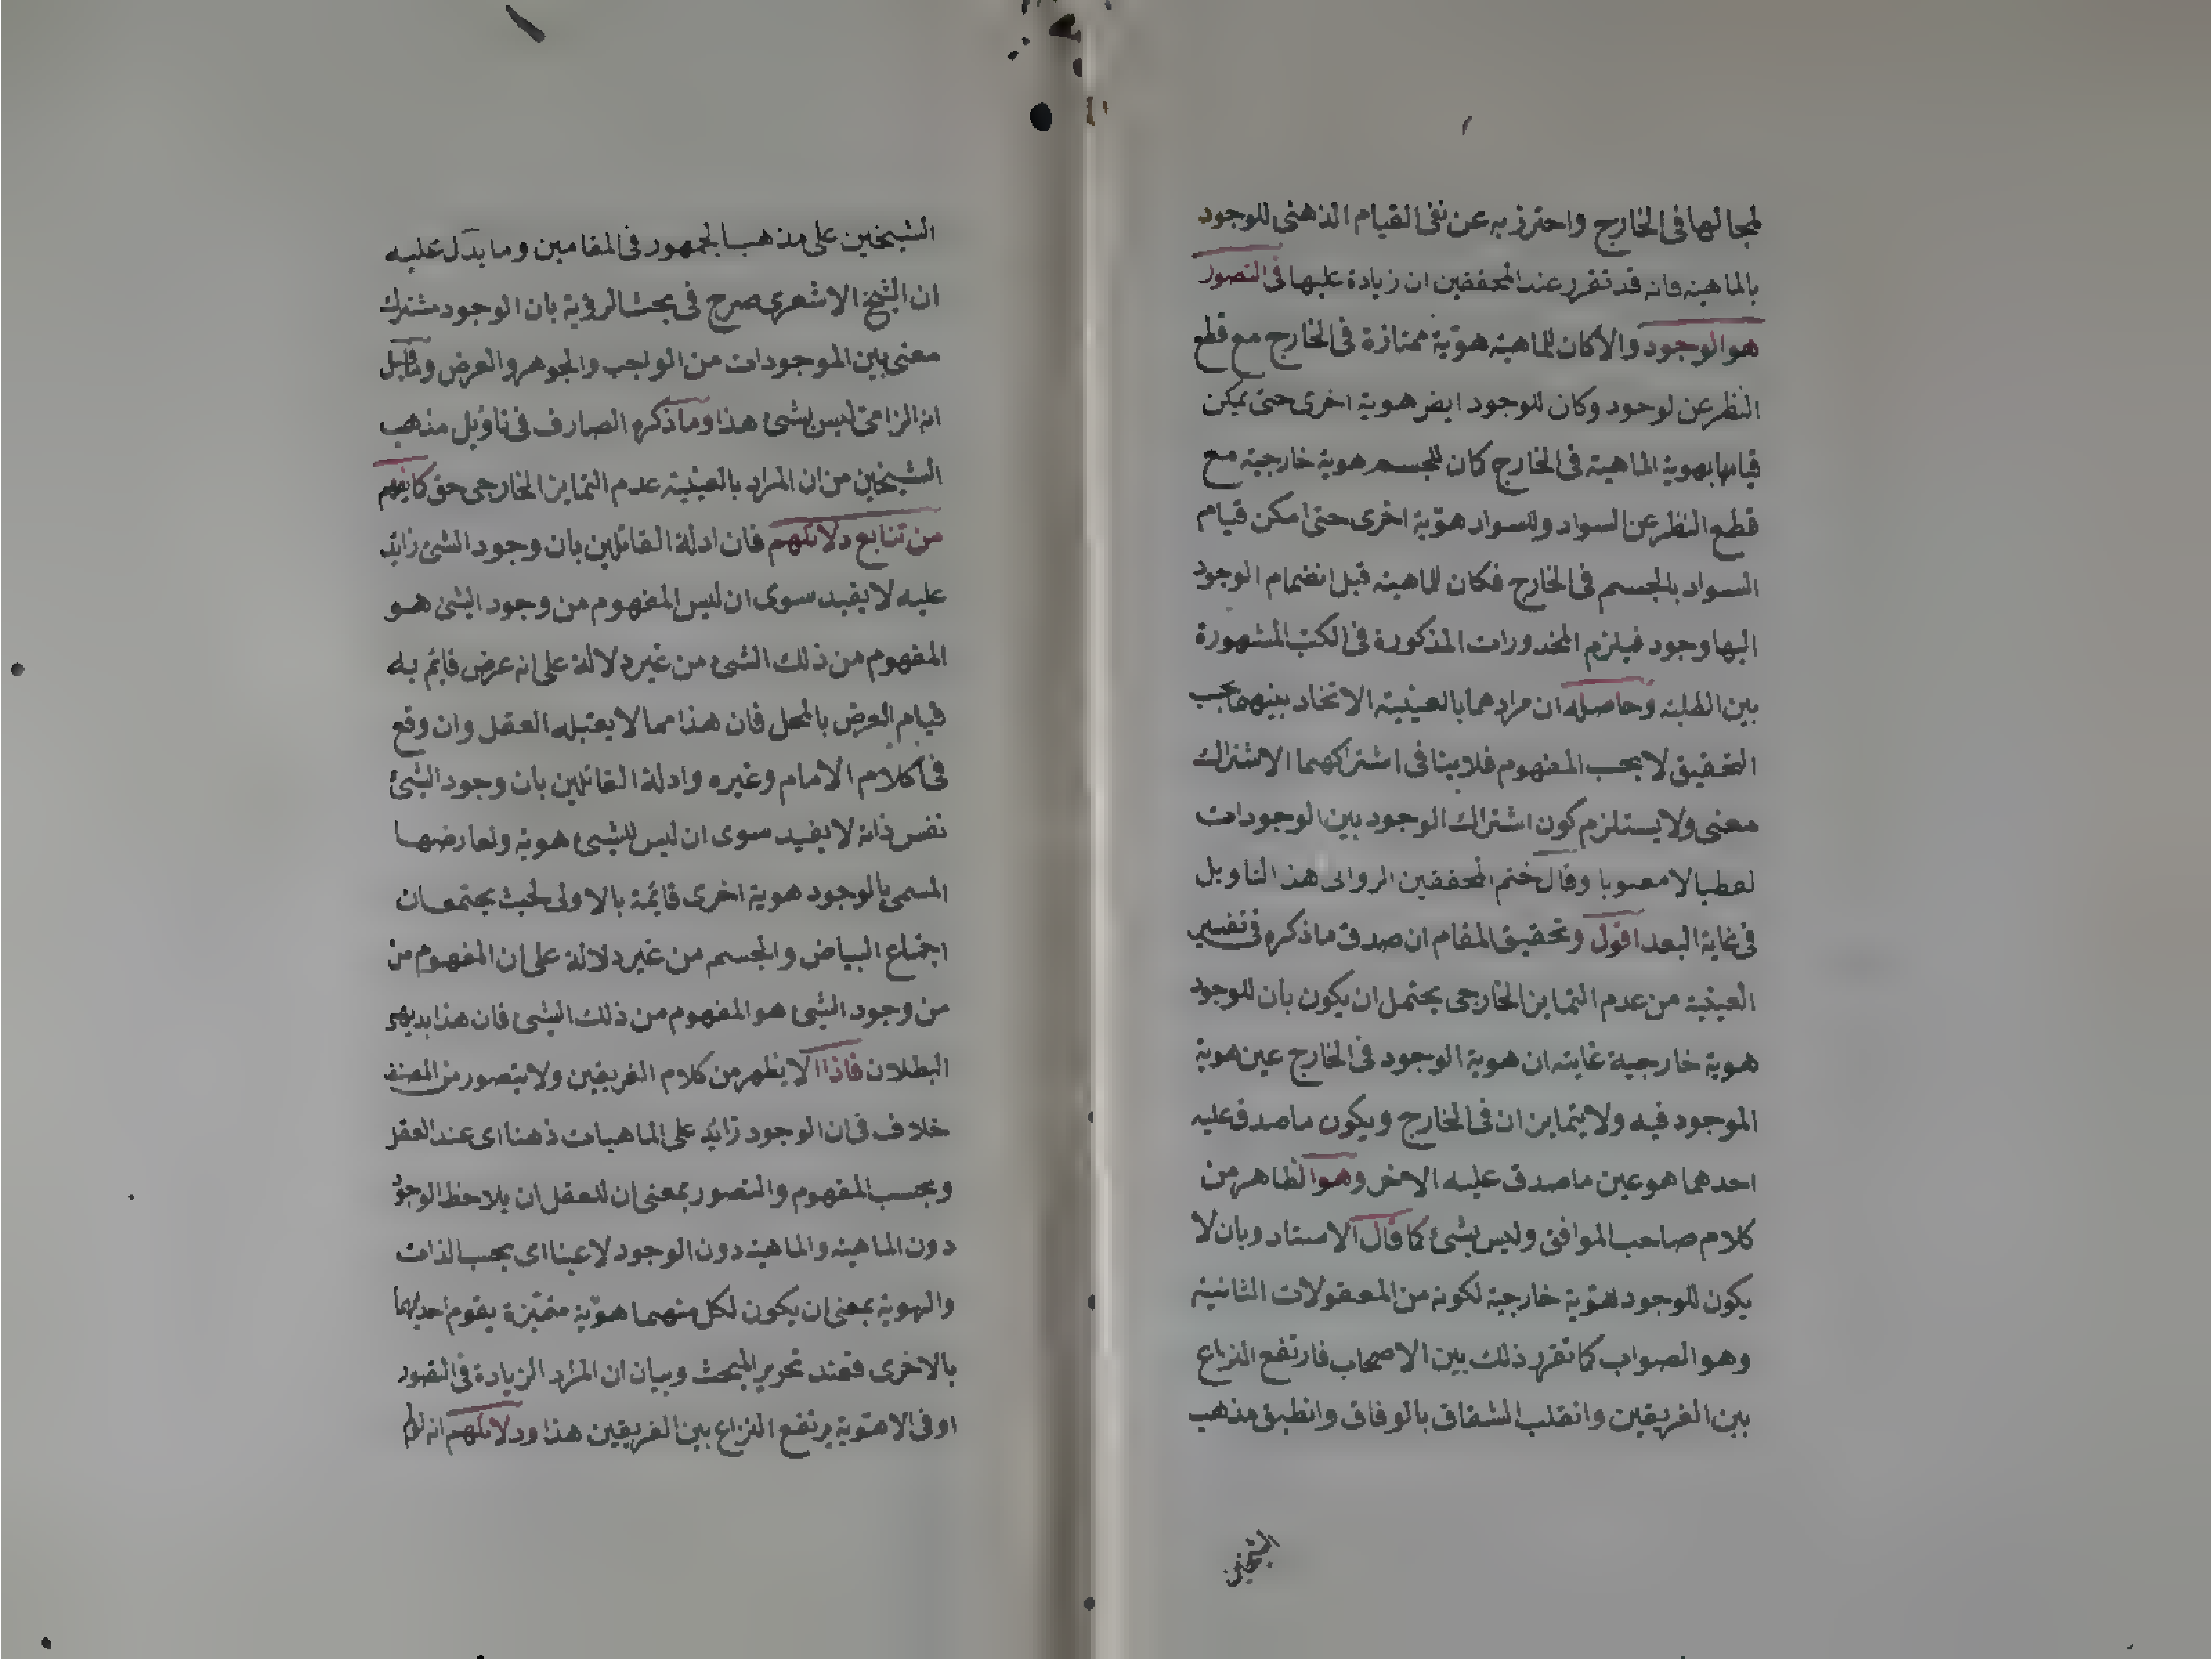 لمحالها فى الخارج واحترز به عن نفى القيام الذهنى للوجود
بالماهية فانه قد تقرر عند المحققين ان زيادة عليها فى التصور
هو الوجود والا كان للماهية هوية ممتازة فى الخارج مع قطع
النظر عن لوجود وكان للوجود ايضر هوية اخرى حتى يمكن
قيامها بهوية الماهية فى الخارج كان للجسم هوية خارجية مع
قطع النظر عن السواد وللسواد هوّية اخرى حتى امكن قيام
السواد بالجسم فى الخارج فكان للماهية قبل انضمام الوجود
اليها وجود فيلزم المحذورات المذكورة فى الكتب المشهورة
بين الطلبة وحاصله ان مرادهما بالعينية الاتحاد بينهما بحسب
التحقيق لا بحسب المفهوم فلا ينافى اشتراكهما الاشتراك
معنى ولا يستلزم كون اشتراك الوجود بين الوجودات
لفظيا لا معنويا وقال ختم المحققين الدوانى هذا التاويل
فى غاية البعد اقول وتحقيق المقام ان صدق ما ذكره فى تفسير
العينية من عدم التمايز الخارجى يحتمل ان يكون بان للوجود
هوية خارجية غايته ان هوية الوجود فى الخارج عين هوية
الموجود فيه ولا يتمايزان فى الخارج ويكون ما صدق عليه
احدهما هو عين ما صدق عليه الاخر وهو الظاهر من
كلام صاحب المواقف وليس بشئ كما قال الاستاد وبان لا
يكون للوجود هوّية خارجية لكونه من المعقولات الثانية
وهو الصواب كما تقرر ذلك بين الاصحاب فارتفع النزاع
بين الفريقين وانقلب الشقاق بالوفاق وانطبق مذهب
الشيخين
الشيخين على مذهب الجمهور فى المقامين وما يدل عليه
ان الشيخ الاشعرى صرح فى بحث الرؤية بان الوجود مشترك
معنى بين الموجودات من الواجب والجوهر والعرض وما قيل
انه الزامى ليس بشئ هذا وما ذكره الصارف فى تاويل مذهب
الشيخين من ان المراد بالعينية عدم التمايز الخارجى حق كما يفهم
من تتابع دلائلهم فان ادلة القائلين بان وجود الشئ زائد
عليه لا يفيد سوى ان ليس المفهوم من وجود الشئ هو
المفهوم من ذلك الشئ من غير دلالة على انه عرض قائم به
قيام العرض بالمحل فان هذا مما لا يقبله العقل وان وقع
فى كلام الامام وغيره وادلة القائلين بان وجود الشئ
نفس ذاته لا يفيد سوى ان ليس للشئ هوية ولعارضها
المسمى بالوجود هوية اخرى قائمة بالاولى بحيث يجتمعان
اجتماع البياض والجسم من غير دلالة على ان المفهوم من
من وجود الشئ هو المفهوم من ذلك الشئ فان هذا بديهى
البطلان فاذا لا يظهر من كلام الفريقين ولا يتصور من المصنف
خلاف فى ان الوجود زائد على الماهيات ذهنا اى عند العقل
وبحسب المفهوم والتصور بمعنى ان للعقل ان يلاحظ الوجود
دون الماهية والماهية دون الوجود لا عينا اى بحسب الذات
والهوية بمعنى ان يكون لكل منهما هوّية متميّزة يقوم احديهما
بالاخرى فعند تحرير المبحث وبيان ان المراد الزيادة فى التصور
او فى الاهوّية يرتفع النزاع بين الفريقين هذا ودلائلهم انه لو